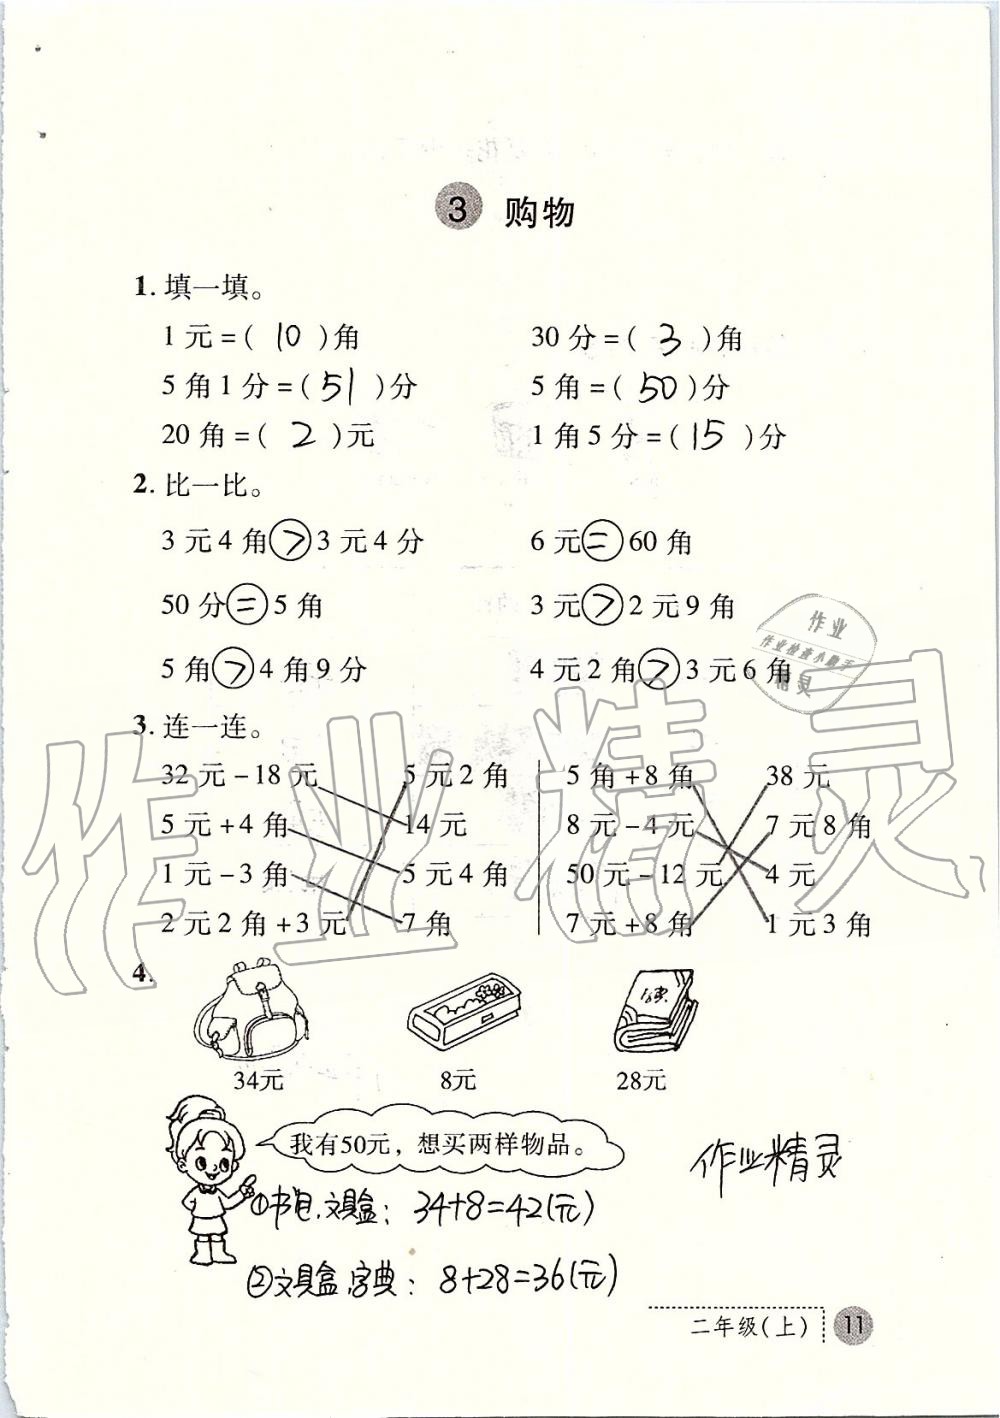 3 购物
1. 填一填。
1元=( 10 )角 30分=( 3 )角
5角1分=( 51 )分 5角=( 50 )分
20角=( 2 )元 1角5分=( 15 )分
2. 比一比。
3元4角>3元4分 6元=60角
50分=5角 3元>2元9角
5角>4角9分 4元2角>3元6角
3. 连一连。
32元-18元 5元2角 5角+8角 38元
5元+4角 14元 8元-4元 7元8角
1元-3角 5元4角 50元-12元 4元
2元2角+3元 7角 7元+8角 1元3角
4.
34元 8元 28元
我有50元，想买两样物品。
作业精灵
①书包、文具盒：34+8=42(元)
②文具盒、字典：8+28=36(元)
二年级(上) 11
作业
作业检查小助手
精灵
作业精灵